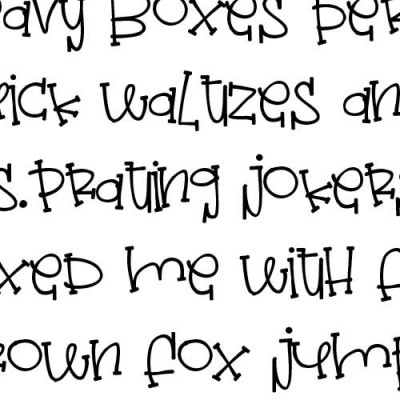 avy Boxes per
ick waltzes an
s. Prating jokers
xed me with f
rown fox jump